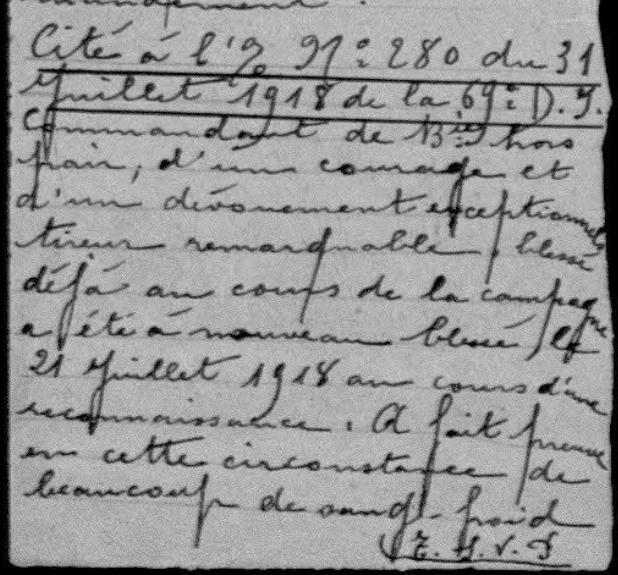 Cité à l'O N° 280 du 31
Juillet 1918 de la 69e D.I.
Commandant de Bie hors
pair, d'un courage et
d'un dévouement exceptionnels
tireur remarquable, blessé
déjà au cours de la campagne
a été à nouveau blessé le
21 Juillet 1918 au cours d'une
reconnaissance. A fait preuve
en cette circonstance de
beaucoup de sang-froid